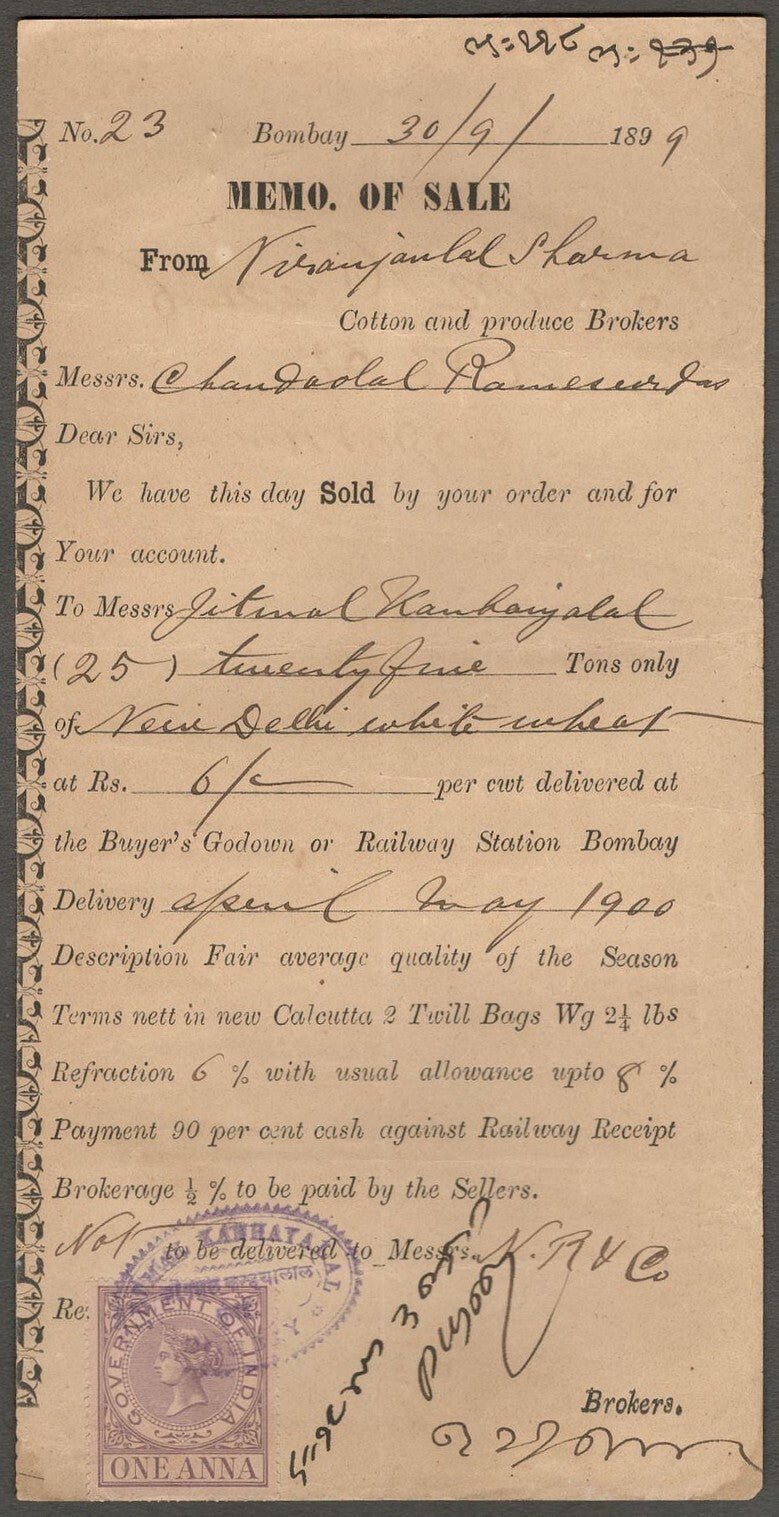 No. 23 Bombay 30/9/ 1899
MEMO. OF SALE
From Niranjanlal Sharma
Cotton and produce Brokers
Messrs. Chandoolal Rameswrdas
Dear Sirs,
We have this day Sold by your order and for
Your account.
To Messrs Jitmal Kanhaiyalal
(25) twenty five Tons only
of New Delhi white wheat
at Rs. 6/- per cwt delivered at
the Buyer's Godown or Railway Station Bombay
Delivery april May 1900
Description Fair average quality of the Season
Terms nett in new Calcutta 2 Twill Bags Wg 2¼ lbs
Refraction 6 % with usual allowance upto 8 %
Payment 90 per cent cash against Railway Receipt
Brokerage ½ % to be paid by the Sellers.
Not to be delivered to Messrs. N. R & Co
Re:
KANHAYALAL
GOVERNMENT OF INDIA
ONE ANNA
Brokers.